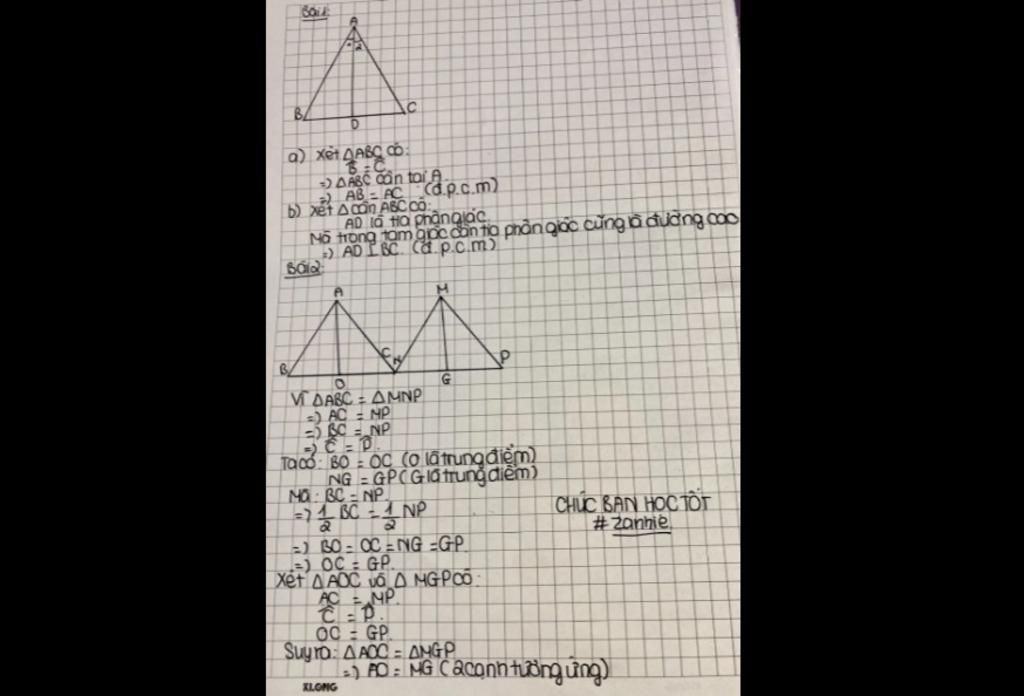 Bài 1:
A
1 2
B
C
D
a) Xét ∆ABC có:
B̂ = Ĉ
=) ∆ABC cân tại A.
=) AB = AC (đ.p.c.m)
b) Xét ∆ cân ABC có:
AD là tia phân giác.
Mà trong tam giác cân tia phân giác cũng là đường cao
=) AD ⊥ BC. (đ.p.c.m)
Bài 2:
A
M
B
C
N
P
O
G
Vì ∆ABC = ∆MNP
=) AC = MP
=) BC = NP
=) Ĉ = P̂.
Ta có: BO = OC (O là trung điểm)
NG = GP (G là trung điểm)
Mà: BC = NP.
=) 1/2 BC = 1/2 NP
CHÚC BẠN HỌC TỐT
# Zanhie
=) BO = OC = NG = GP.
=) OC = GP.
Xét ∆AOC và ∆MGP có:
AC = MP.
Ĉ = P̂.
OC = GP.
Suy ra: ∆AOC = ∆MGP
=) AO = MG (2 cạnh tương ứng)
XLONG